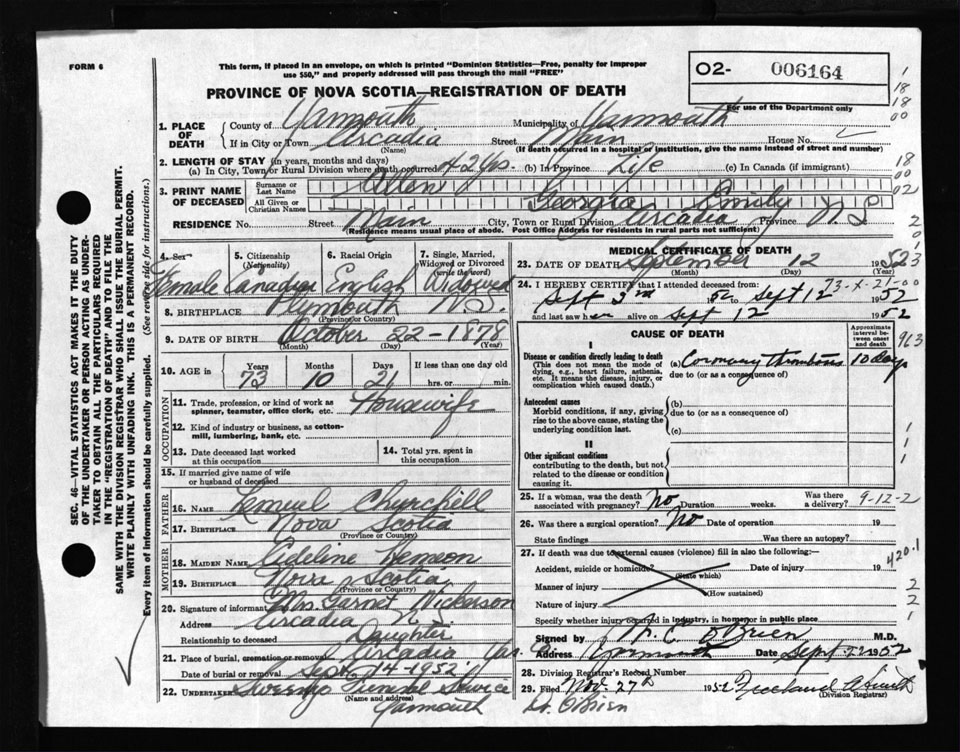 FORM 6
This form, if placed in an envelope, on which is printed "Dominion Statistics—Free, penalty for improper
use $50," and properly addressed will pass through the mail "FREE"
02- 006164
For use of the Department only
PROVINCE OF NOVA SCOTIA—REGISTRATION OF DEATH
1. PLACE OF DEATH
County of Yarmouth Municipality of Yarmouth
If in City or Town Arcadia Street Main House No.
(Name) (If death occurred in a hospital or institution, give the name instead of street and number)
2. LENGTH OF STAY (in years, months and days)
(a) In City, Town or Rural Division where death occurred 42 yrs. (b) In Province Life (c) In Canada (if immigrant)
3. PRINT NAME OF DECEASED
Surname or Last Name Allen
All Given or Christian Names Georgia Emily
RESIDENCE No. Street Main City, Town or Rural Division Arcadia Province N.S.
(Residence means usual place of abode. Post Office Address for residents in rural parts not sufficient)
4. Sex 5. Citizenship (Nationality) 6. Racial Origin 7. Single, Married, Widowed or Divorced (write the word)
Female Canadian English Widowed
8. BIRTHPLACE Plymouth N.S.
(Province or Country)
9. DATE OF BIRTH October 22-1878
(Month) (Day) (Year)
10. AGE in Years Months Days If less than one day old
73 10 21 hrs. or min.
OCCUPATION
11. Trade, profession, or kind of work as spinner, teamster, office clerk, etc. Housewife
12. Kind of industry or business, as cotton-
mill, lumbering, bank, etc.
13. Date deceased last worked at this occupation
14. Total yrs. spent in this occupation
15. If married give name of wife or husband of deceased
FATHER
16. NAME Lemuel Churchill
17. BIRTHPLACE Nova Scotia
(Province or Country)
MOTHER
18. MAIDEN NAME Adeline Hemeon
19. BIRTHPLACE Nova Scotia
(Province or Country)
20. Signature of informant Mrs. Garnet Nickerson
Address Arcadia N.S.
Relationship to deceased Daughter
21. Place of burial, cremation or removal Arcadia Yar. Co.
Date of burial or removal Sept. 14-1952.
22. Undertaker Sweeny Funeral Service
(Name and address)
Yarmouth
MEDICAL CERTIFICATE OF DEATH
23. DATE OF DEATH September 12 1952
(Month) (Day) (Year)
24. I HEREBY CERTIFY that I attended deceased from:
Sept 3rd 1952 to Sept 12 1952
and last saw her alive on Sept 12 1952
CAUSE OF DEATH
Approximate interval between onset and death
I
Disease or condition directly leading to death (a) Coronary thrombosis 10 days
(This does not mean the mode of dying, e.g., heart failure, asthenia, etc. It means the disease, injury, or complication which caused death.)
due to (or as a consequence of)
Antecedent causes
Morbid conditions, if any, giving rise to the above cause, stating the underlying condition last.
(b)
due to (or as a consequence of)
(c)
II
Other significant conditions
contributing to the death, but not related to the disease or condition causing it.
25. If a woman, was the death associated with pregnancy? No Duration weeks. Was there a delivery?
9-12-2
26. Was there a surgical operation? No Date of operation 19
State findings Was there an autopsy?
27. If death was due to external causes (violence) fill in also the following:—
Accident, suicide or homicide? Date of injury 19
(State which)
Manner of injury
(How sustained)
Nature of injury
Specify whether injury occurred in industry, in home or in public place
Signed by M.D.
O'Brien
Address Yarmouth Date Sept. 22 1952
28. Division Registrar's Record Number
29. Filed Nov. 27th 1952
(Division Registrar)
Dr. O'Brien
SEC. 46—VITAL STATISTICS ACT MAKES IT THE DUTY
OF THE UNDERTAKER OR PERSON ACTING AS UNDER-
TAKER TO OBTAIN ALL THE PARTICULARS REQUIRED
IN THE "REGISTRATION OF DEATH" AND TO FILE THE
SAME WITH THE DIVISION REGISTRAR WHO SHALL ISSUE THE BURIAL PERMIT.
WRITE PLAINLY WITH UNFADING INK. THIS IS A PERMANENT RECORD.
Every item of information should be carefully supplied. (See reverse side for instructions.)
73-X-21-00
963
420.1